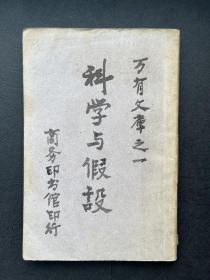 万有文库之一
科学与假设
商务印书馆印行